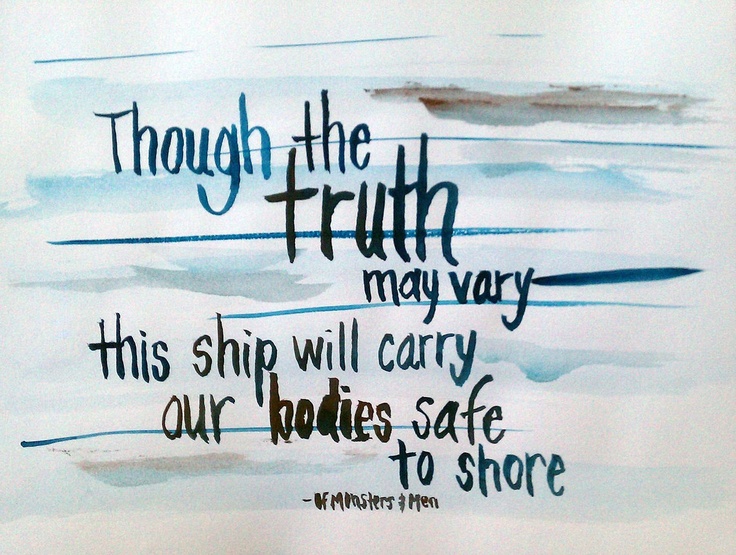 Though the
truth
may vary
this ship will carry
our bodies safe
to shore
- Of Monsters & Men